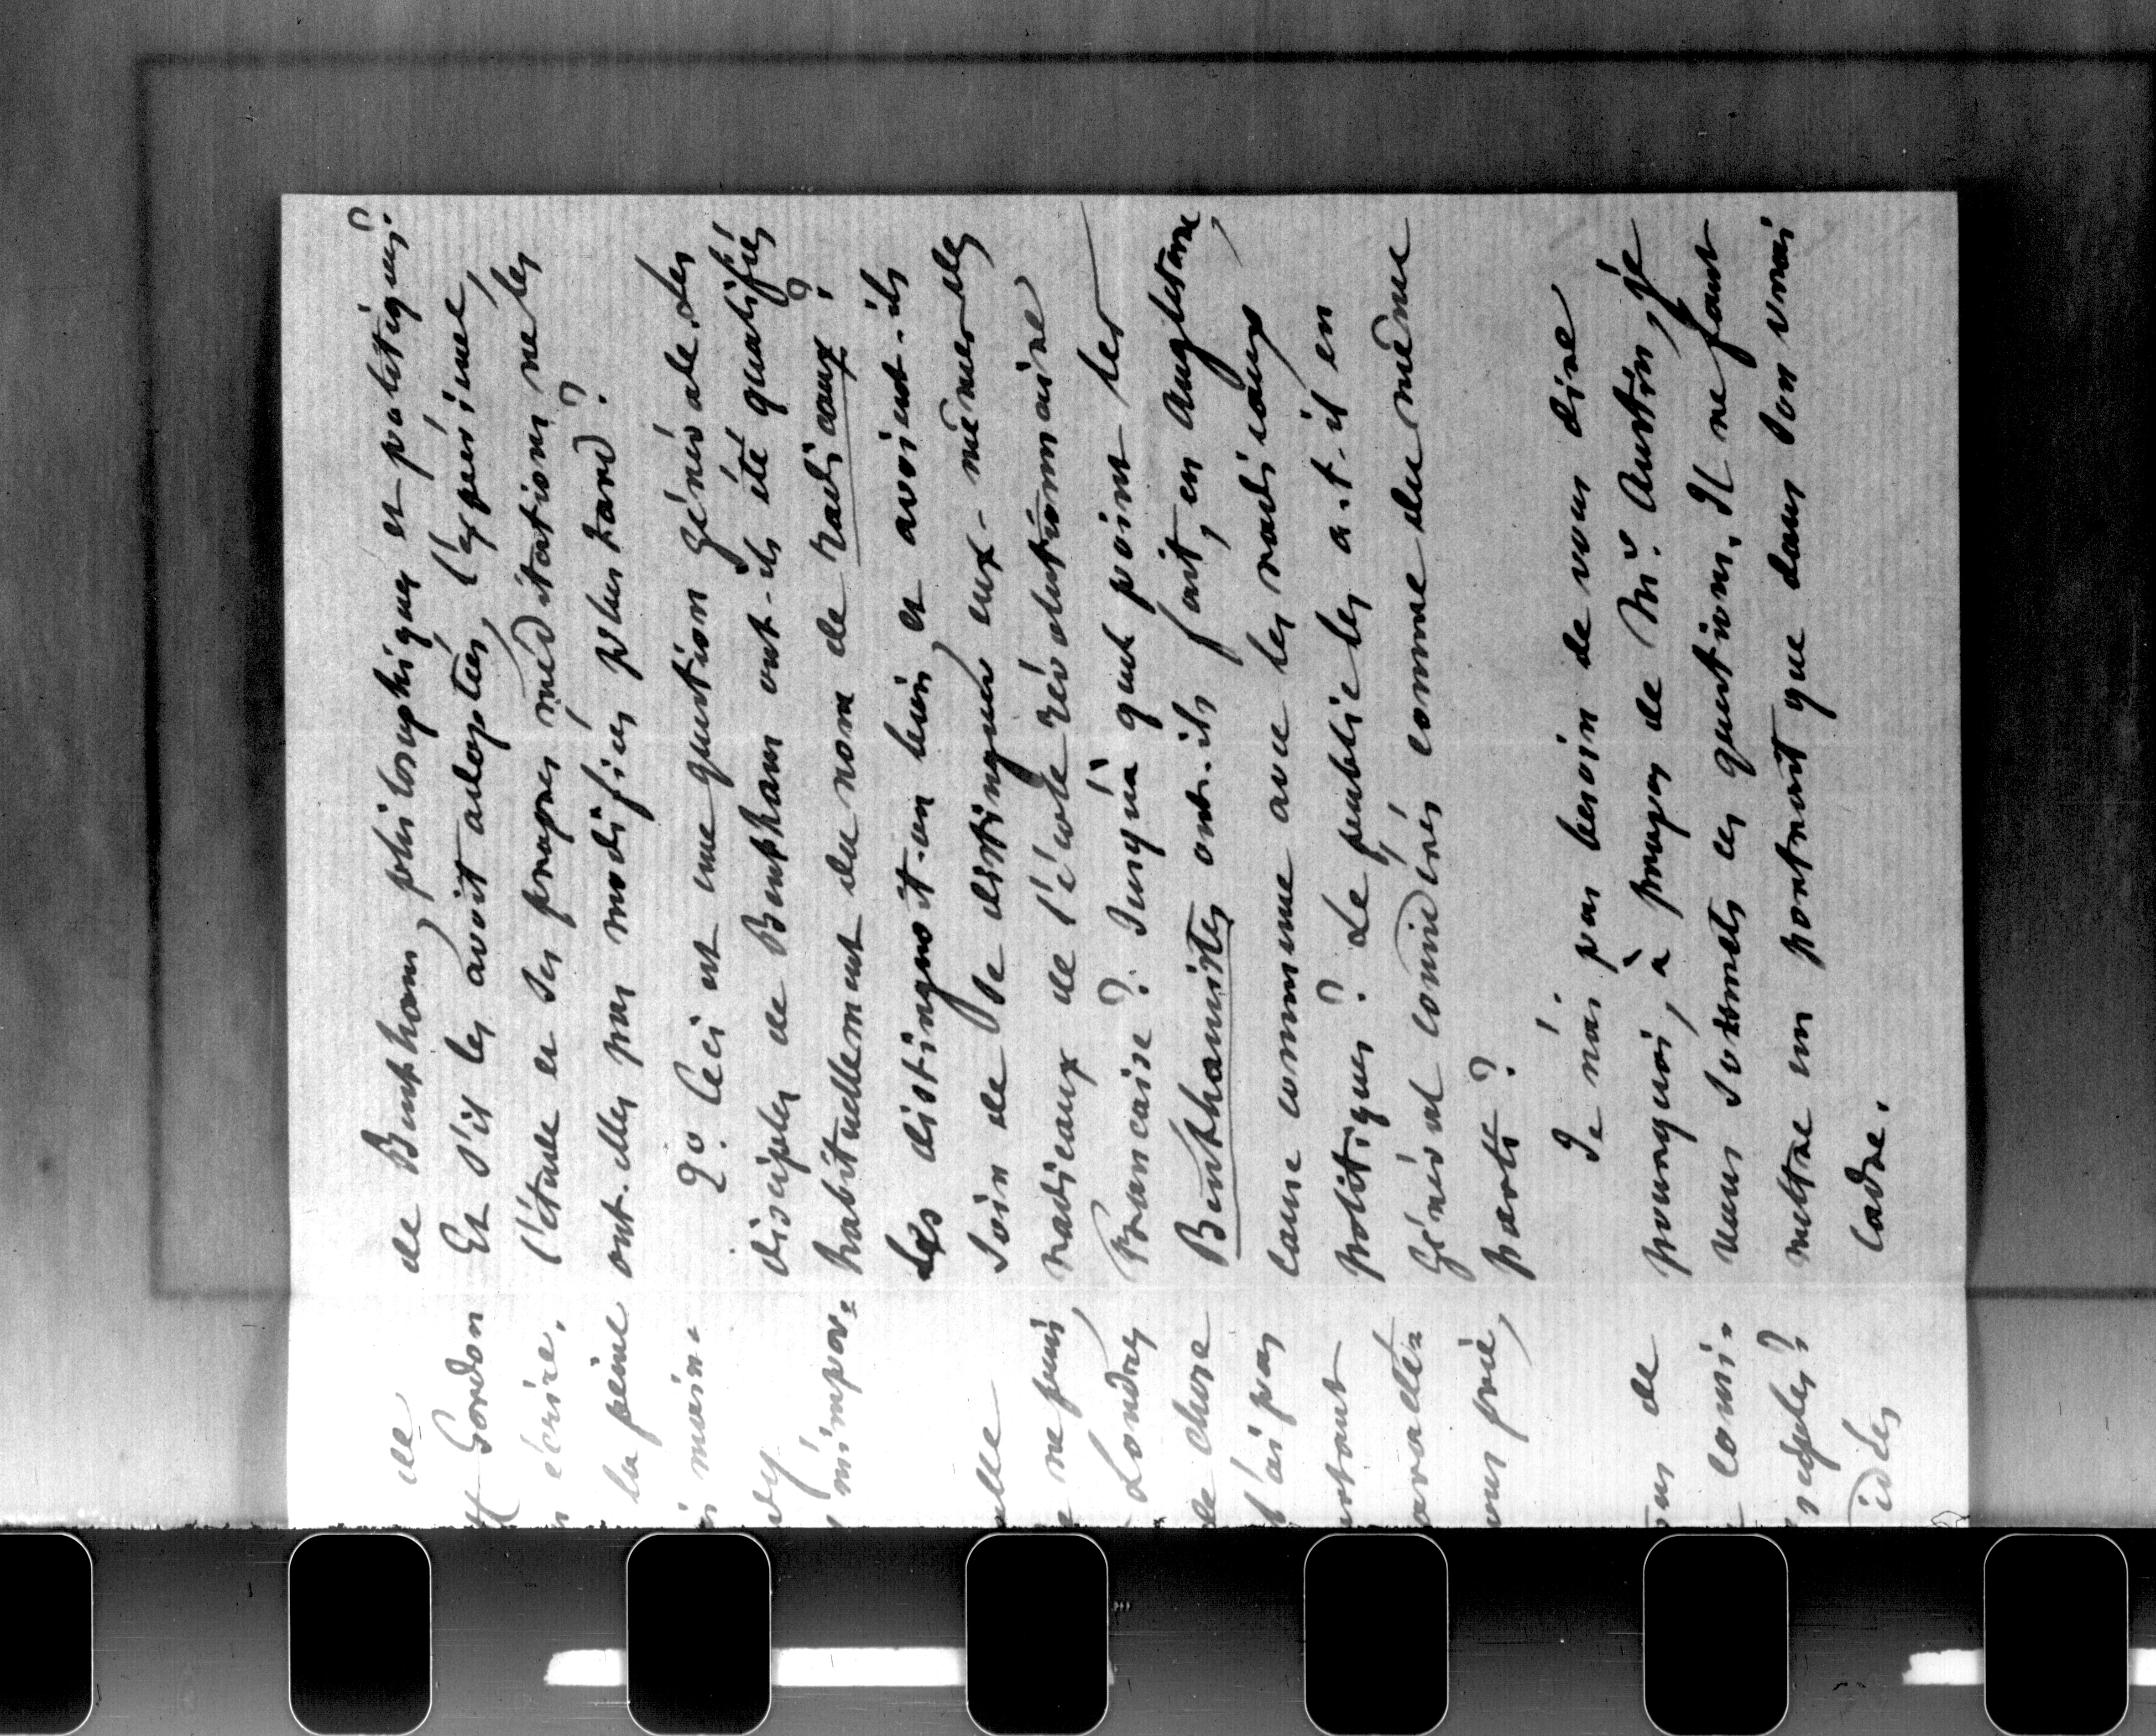 de
Gordon
écrire.
la peine
main-
m'impor-
ne puis,
Londres
de chose
l'ai pas
vous prie,
de
idées
de Bentham, philosophiques et politiques?
Et s'il les avoit adoptées, l'expérience,
l'étude et ses propres méditations ne les
ont-elles pas modifiées plus tard?
2º. Ceci est une question générale. Les
disciples de Bentham ont-ils été qualifiés
habituellement du nom de radicaux?
Les distingnoit-on bien et avoient-ils
soin de se distinguer eux-mêmes des
radicaux de l'école révolutionnaire
Francaise? Jusqu'à quel point les
Benthamistes ont-ils fait, en Angleterre,
cause commune avec les radicaux
politiques? Le public les a-t-il en
général considérés comme du même
parti?
Je n'ai pas besoin de vous dire
pourquoi, à propos de Mr. Austin, je
vous soumets ces questions. Il ne faut
mettre un portrait que dans son vrai
cadre.